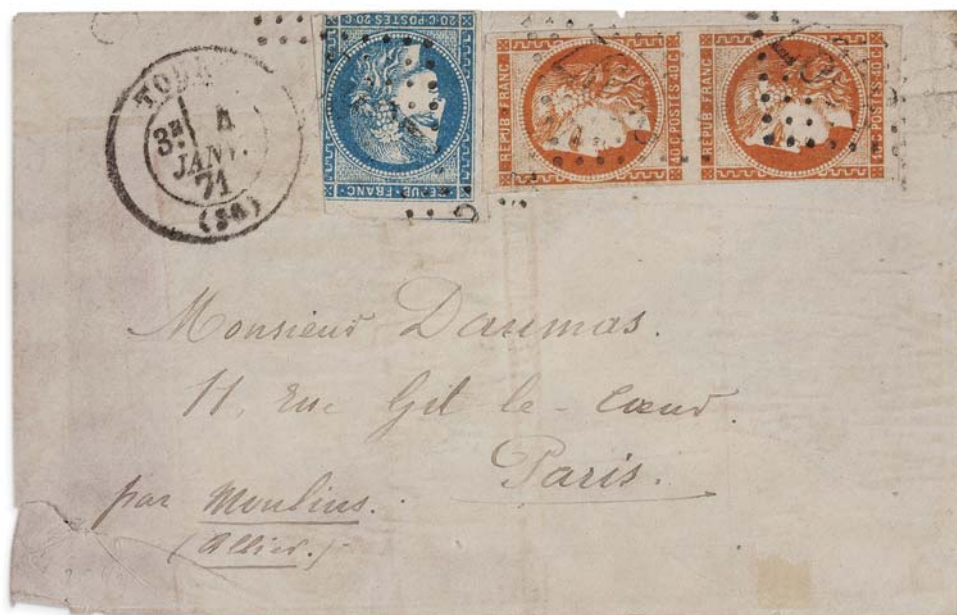 20·C·POSTES·20·C
REPUB·FRANC·
REPUB·FRANC·
40·C·POSTES·40·C
REPUB·FRANC·
40·C·POSTES·40·C
3E
4
JANV.
71
Monsieur Daumas.
11, Rue Gît le-Cœur.
Paris.
par Moulins.
(Allier.)